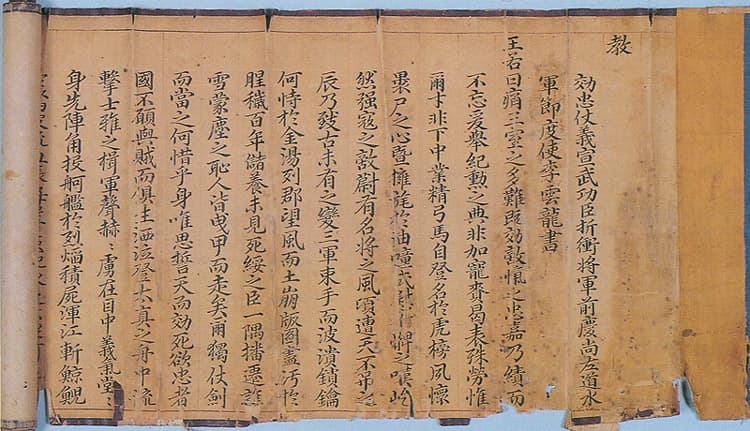 教
効忠仗義宣武功臣折衝將軍前慶尚左道水
軍節度使李雲龍書
王若曰痛王室之多難旣効敵愾之忠嘉乃績而
不忘爰舉紀勳之典非加寵賚曷表殊勞惟
爾才非下中業精弓馬自登名於虎榜夙懷
裹尸之心曁擁旄於油幢式 將之嘆屹
然强寇之敵蔚有名將之風頃遭天不吊之
辰乃致古未有之變三軍束手而波潰鎖鑰
何恃於金湯列郡望風而土崩版圖盡汚於
腥穢百年儲養未見死綏之臣一隅播遷誰
雪蒙塵之恥人皆曳甲而走矣爾獨仗劍
而當之何惜乎身唯思誓天而効死欲忠者
國不顧與賊而俱生洒泣登太真之舟中流
擊士雅之楫軍聲赫〻虜在目中義氣堂〻
身先陣角 舸艦於烈焰積屍渾江斬鯨鯢